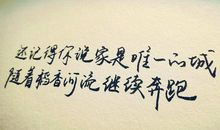 还记得你说家是唯一的城
随着稻香河流继续奔跑